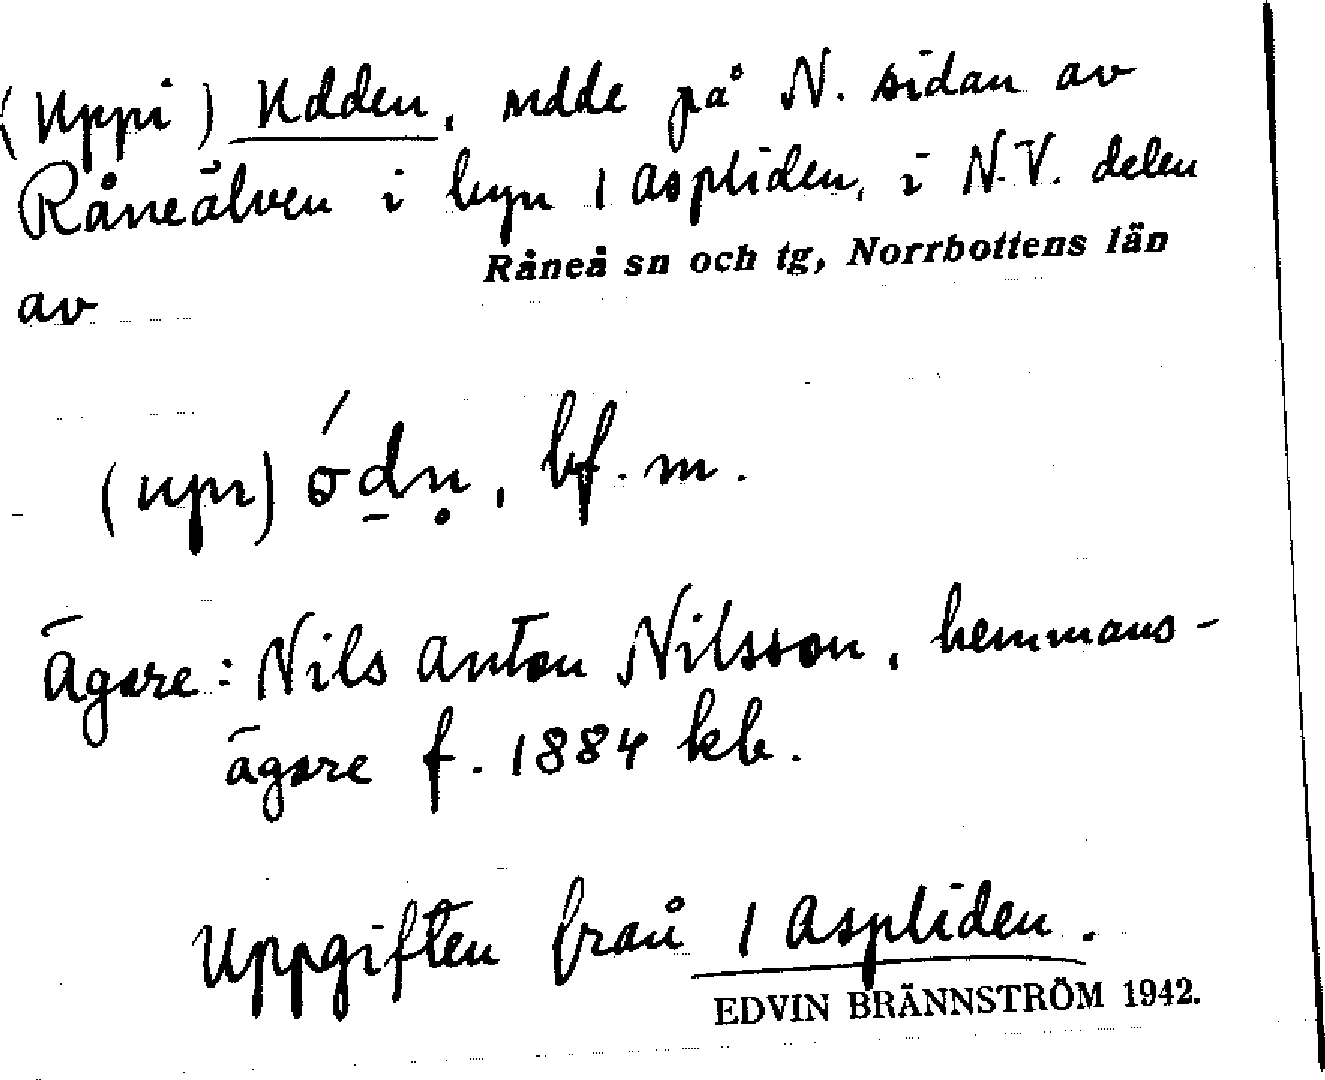 (Uppi) Udden, udde på N. sidan av
Råneälven i byn 1 Aspliden, i N.V. delen
av Råneå sn och tg, Norrbottens län
(upı) ó̄d̠ṇ, bf. m.
Ägare: Nils Anton Nilsson, hemmans-
ägare f. 1884 kb.
Uppgiften från 1 Aspliden.
EDVIN BRÄNNSTRÖM 1942.